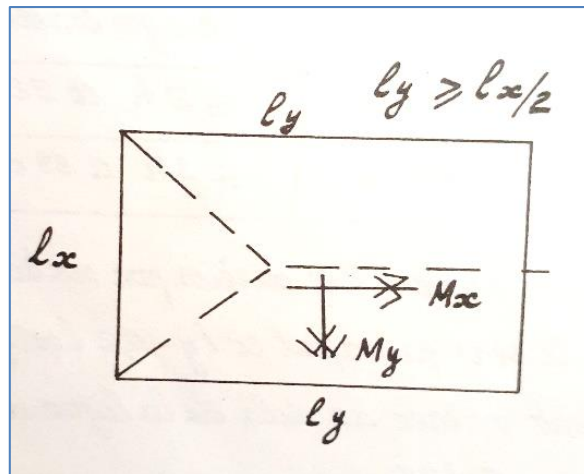 ly ly ⩾ lx/2
lx
Mx
My
ly